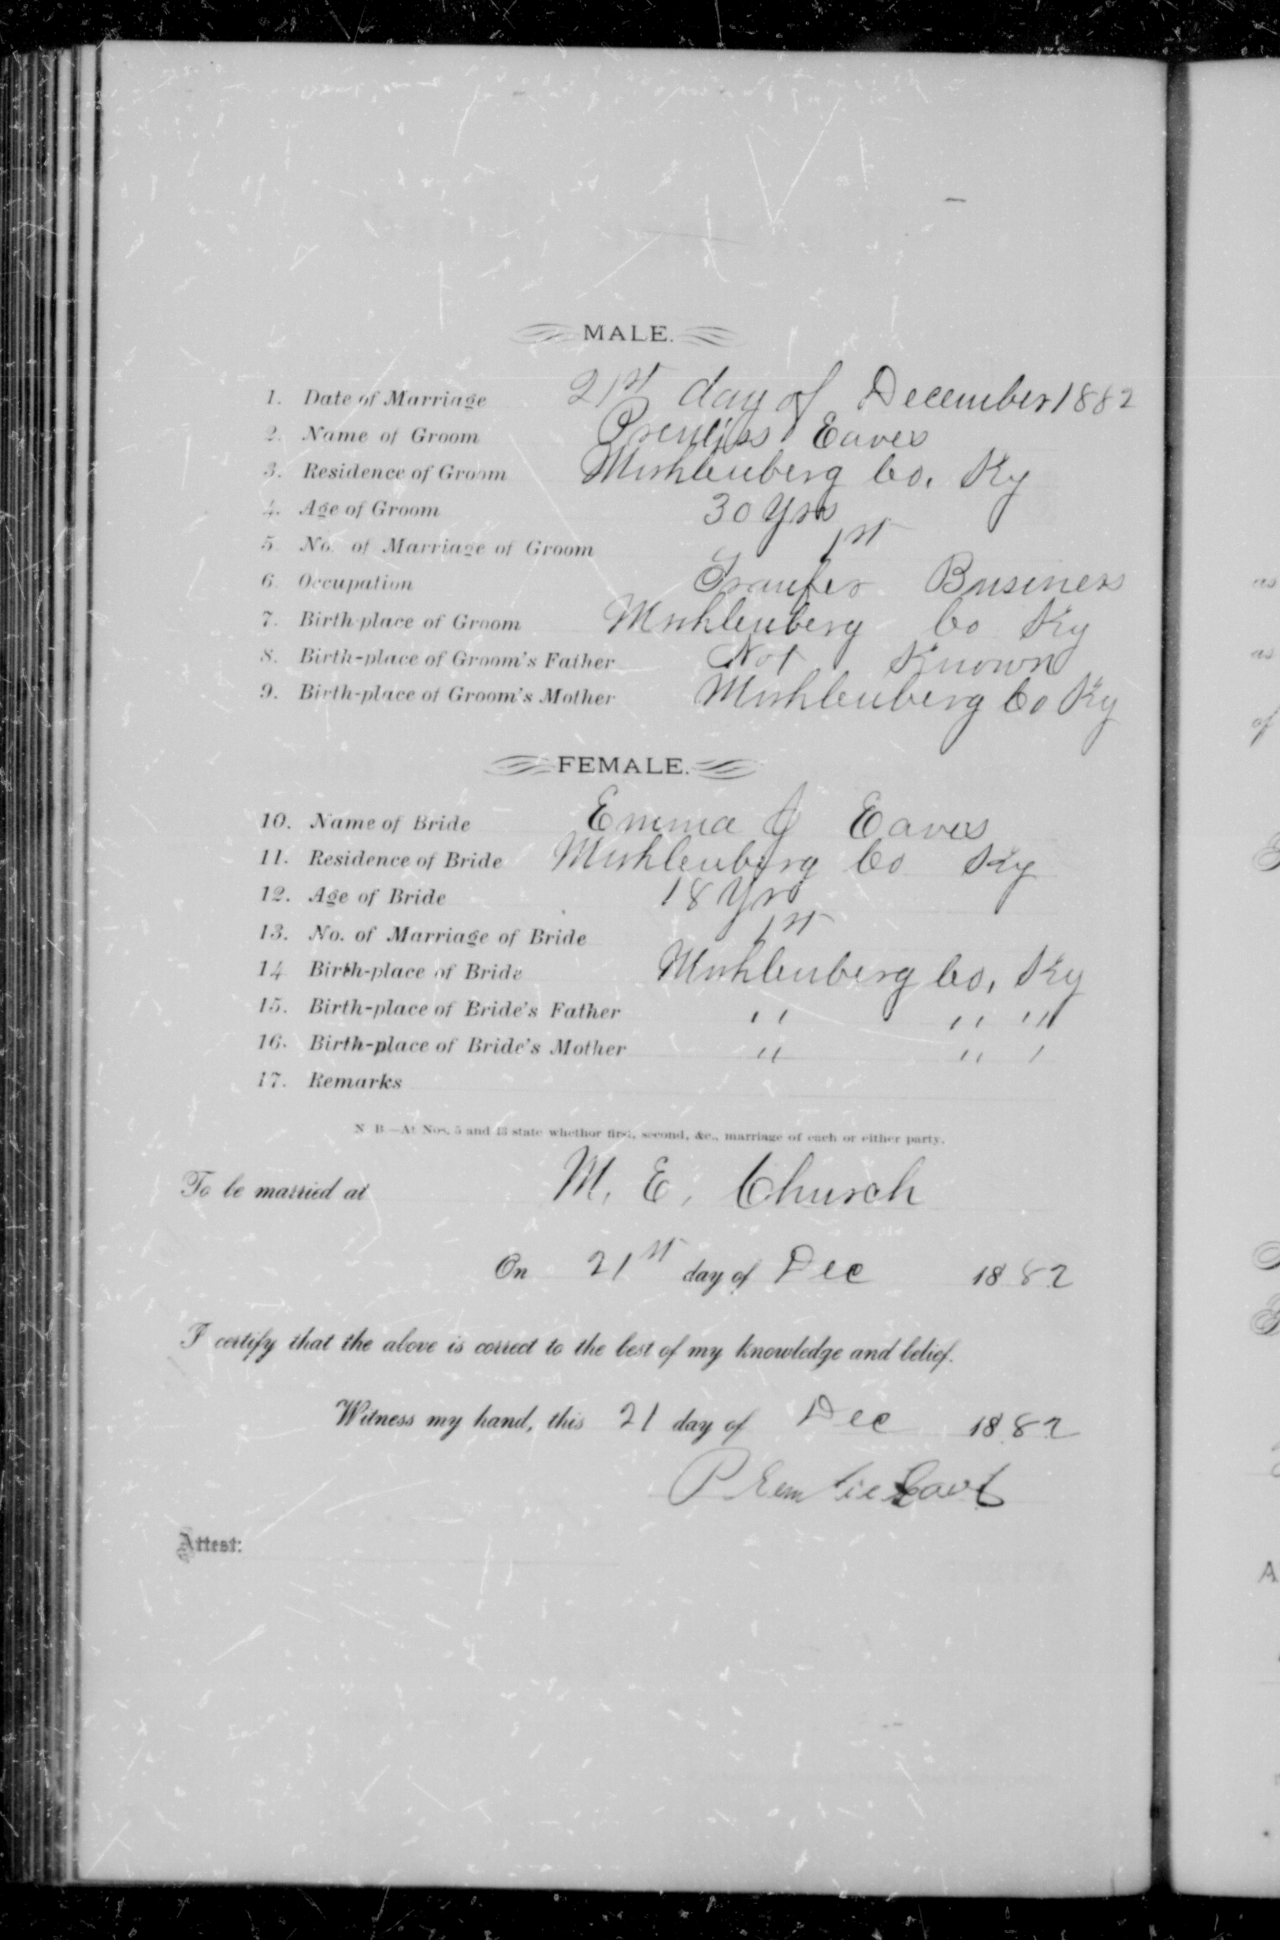 MALE.
1. Date of Marriage 21st day of December 1882
2. Name of Groom Prentiss Eaves
3. Residence of Groom Muhlenberg Co. Ky
4. Age of Groom 30 Yrs
5 No. of Marriage of Groom 1st
6. Occupation Tranfer Business
7. Birth-place of Groom Muhlenberg Co Ky
8. Birth-place of Groom's Father Not Known
9. Birth-place of Groom's Mother Muhlenberg Co Ky
FEMALE.
10. Name of Bride Emma J Eaves
11. Residence of Bride Muhlenberg Co Ky
12. Age of Bride 18 Yrs
13. No. of Marriage of Bride 1st
14 Birth-place of Bride Muhlenberg Co, Ky
15. Birth-place of Bride's Father " " "
16. Birth-place of Bride's Mother " " "
17. Remarks
N B—At Nos. 5 and 13 state whethor first, second, &c., marriage of each or either party.
To be married at M. E. Church
On 21st day of Dec 1882
I certify that the above is correct to the best of my knowledge and belief.
Witness my hand, this 21 day of Dec 1882
Attest: